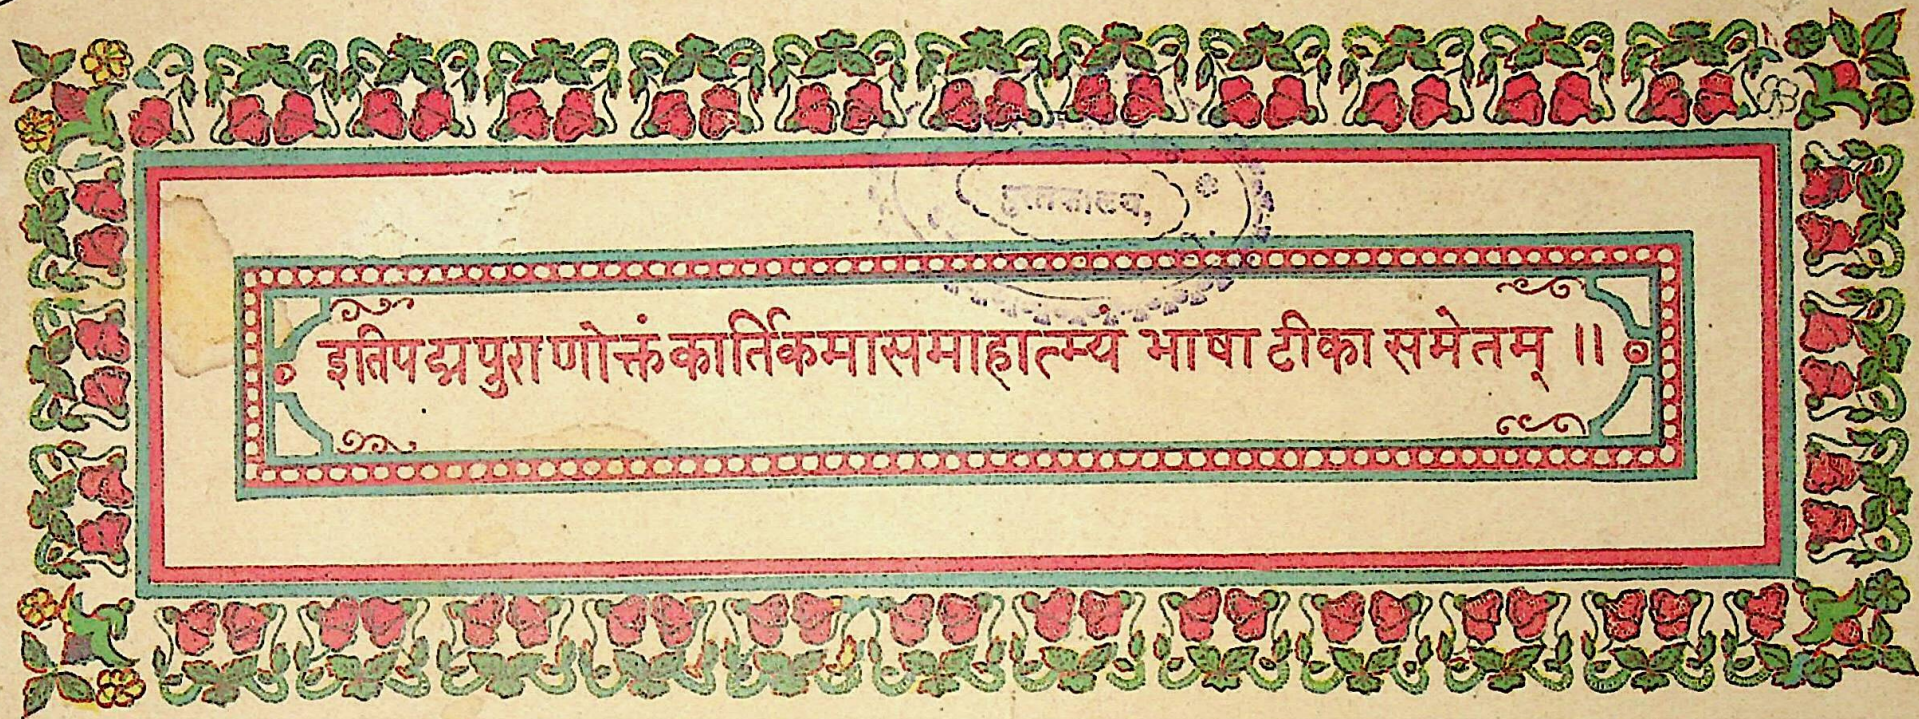 पुस्तकालय,
इतिपद्मपुराणोक्तंकार्तिकमासमाहात्म्यं भाषा टीका समेतम् ॥